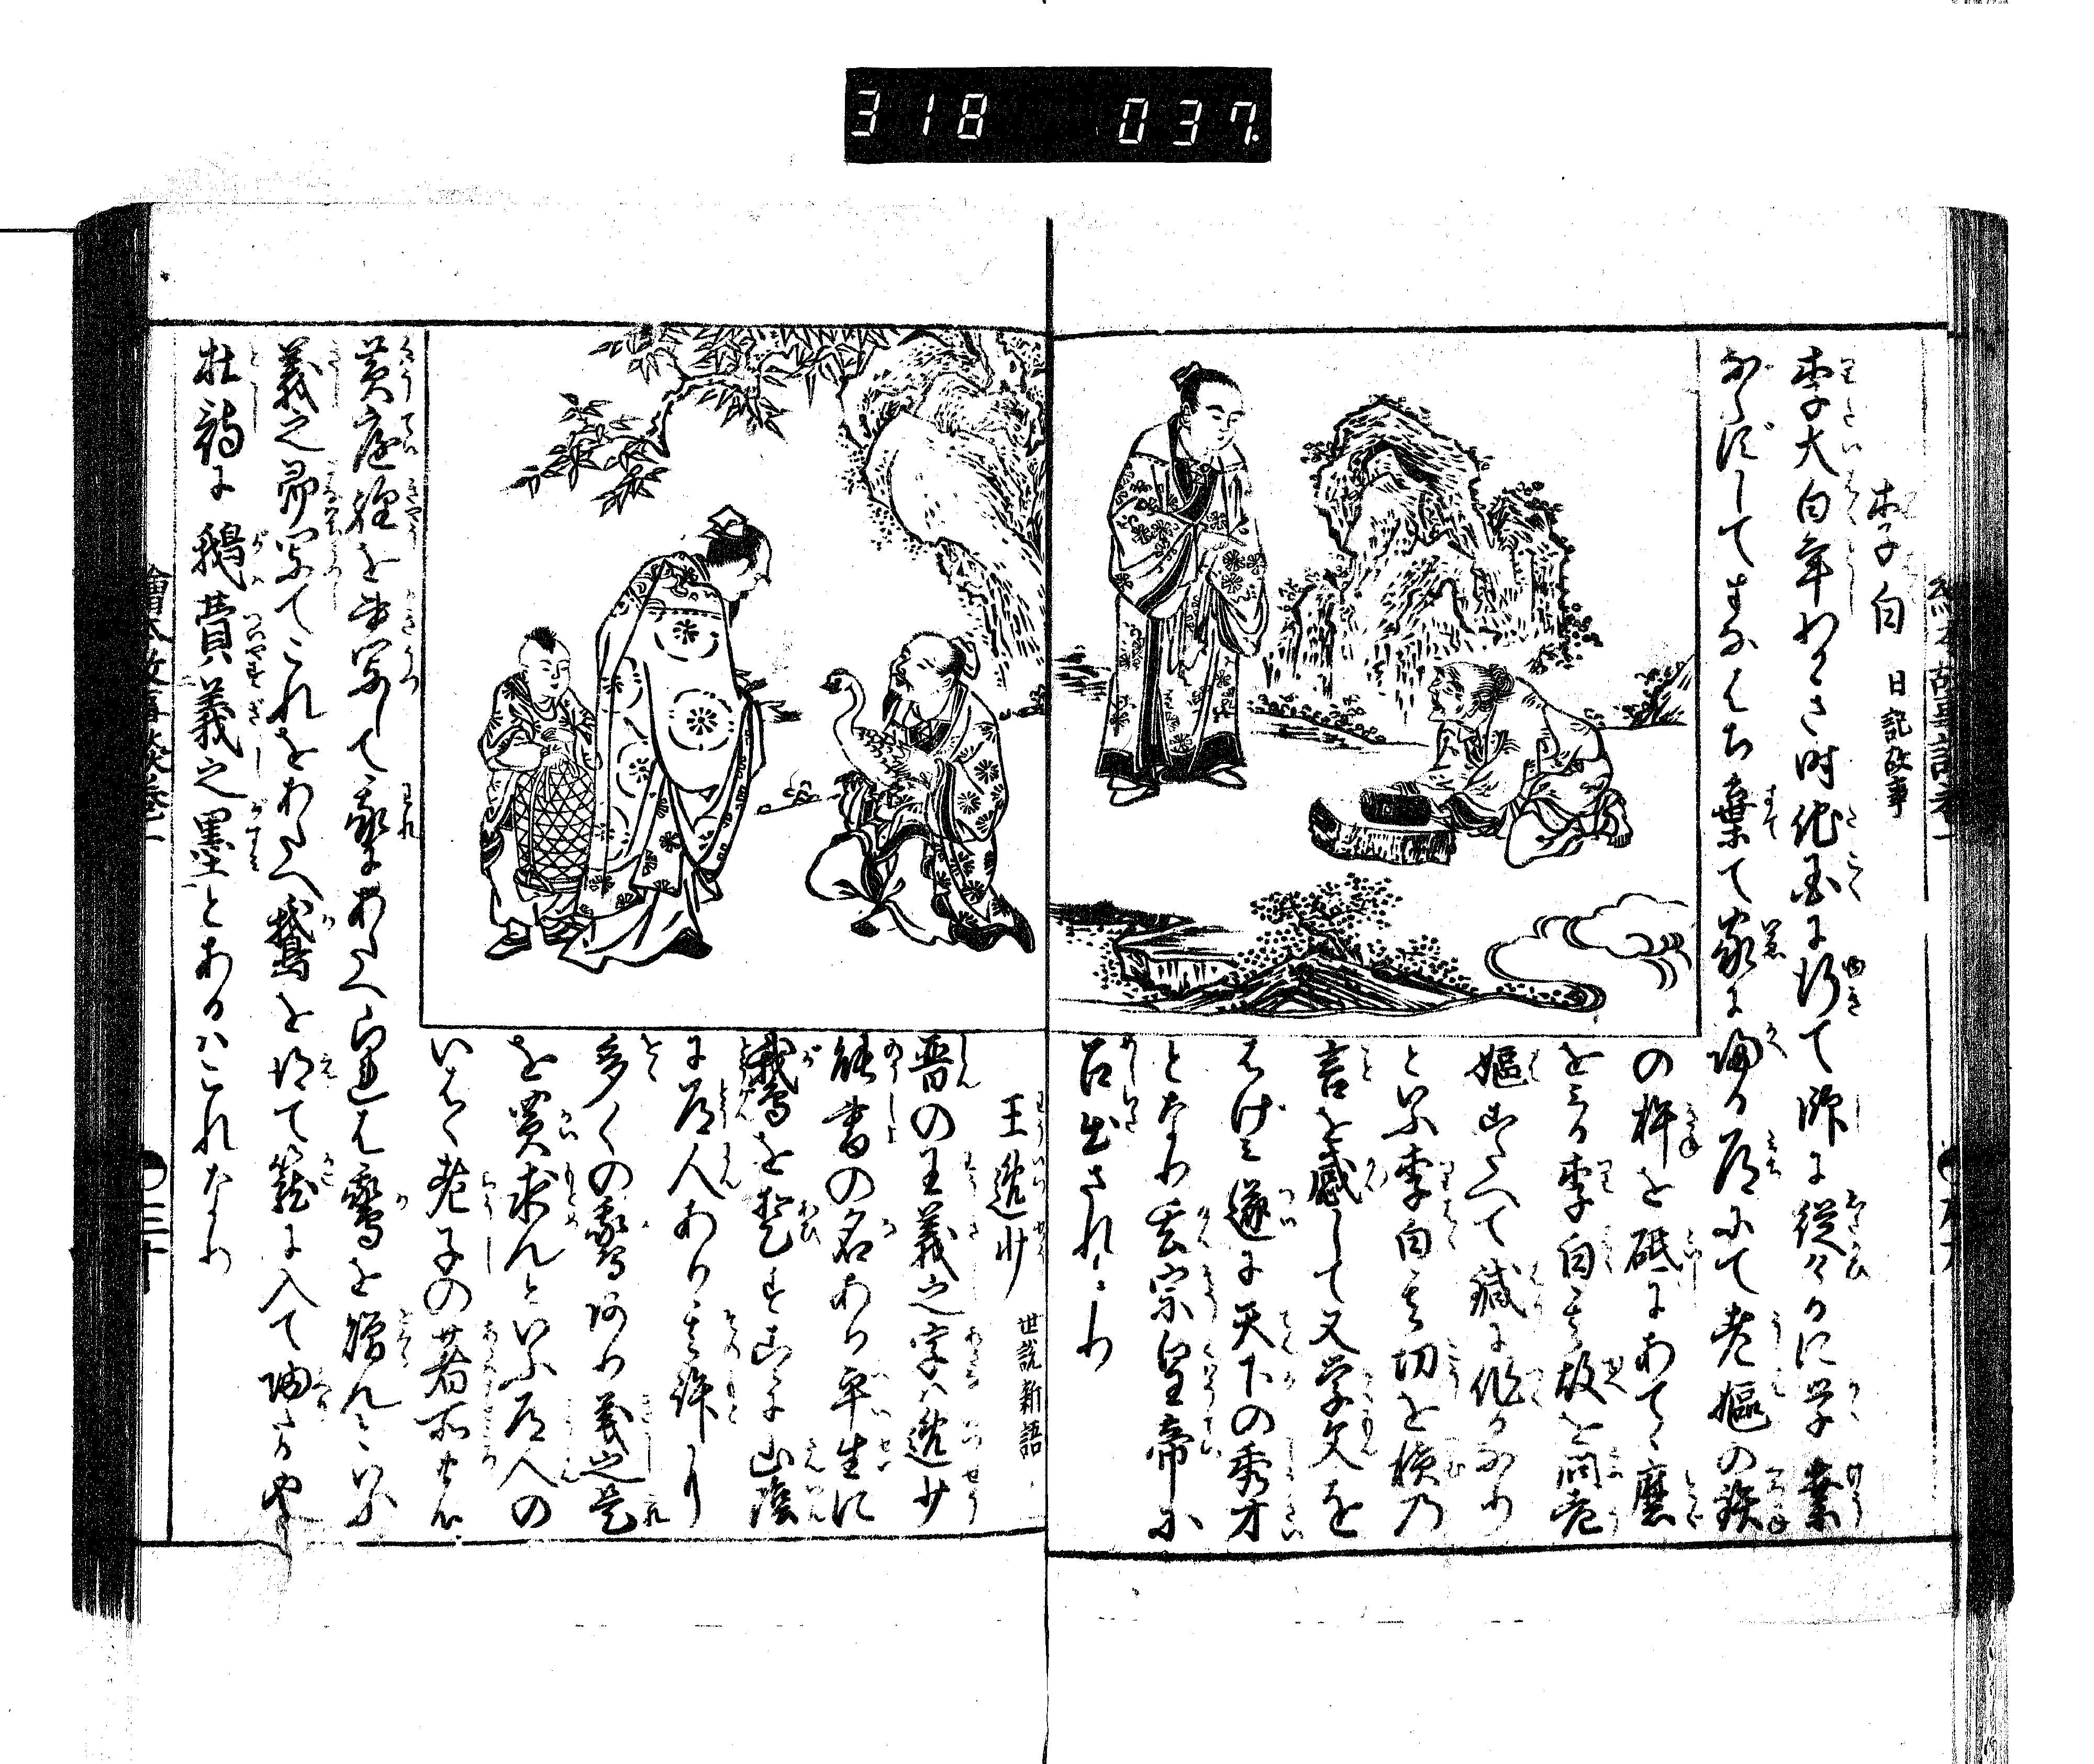 318 037
李白 日記故事
李太白年わかき時他国に行て師に従けるに学業
ならずしてすなはち棄て家に帰る道にて老嫗の鉄
の杵を砥にあてゝ磨
をみる李白其故を問老
嫗こたへて鍼に作るなり
といふ李白其切を積乃
言を感じて又学文を
はげみ遂に天下の秀才
となり玄宗皇帝に
召出されしなり
王逸少 世説新語
晋の王羲之字は逸少
能書の名あり平生に
鵞を愛すこゝに山陰
に道人あり其許に
多くの鵞あり羲之是
を買求んといふ道人の
いはく老子の著所
黄庭経を書写して我にあたへ給はゞ鵞を贈んといふ
羲之即写てこれをあたへ鵞を得て籠に入て帰る
杜詩に鵝費羲之墨とあるハこれなり
繪本故事談巻二